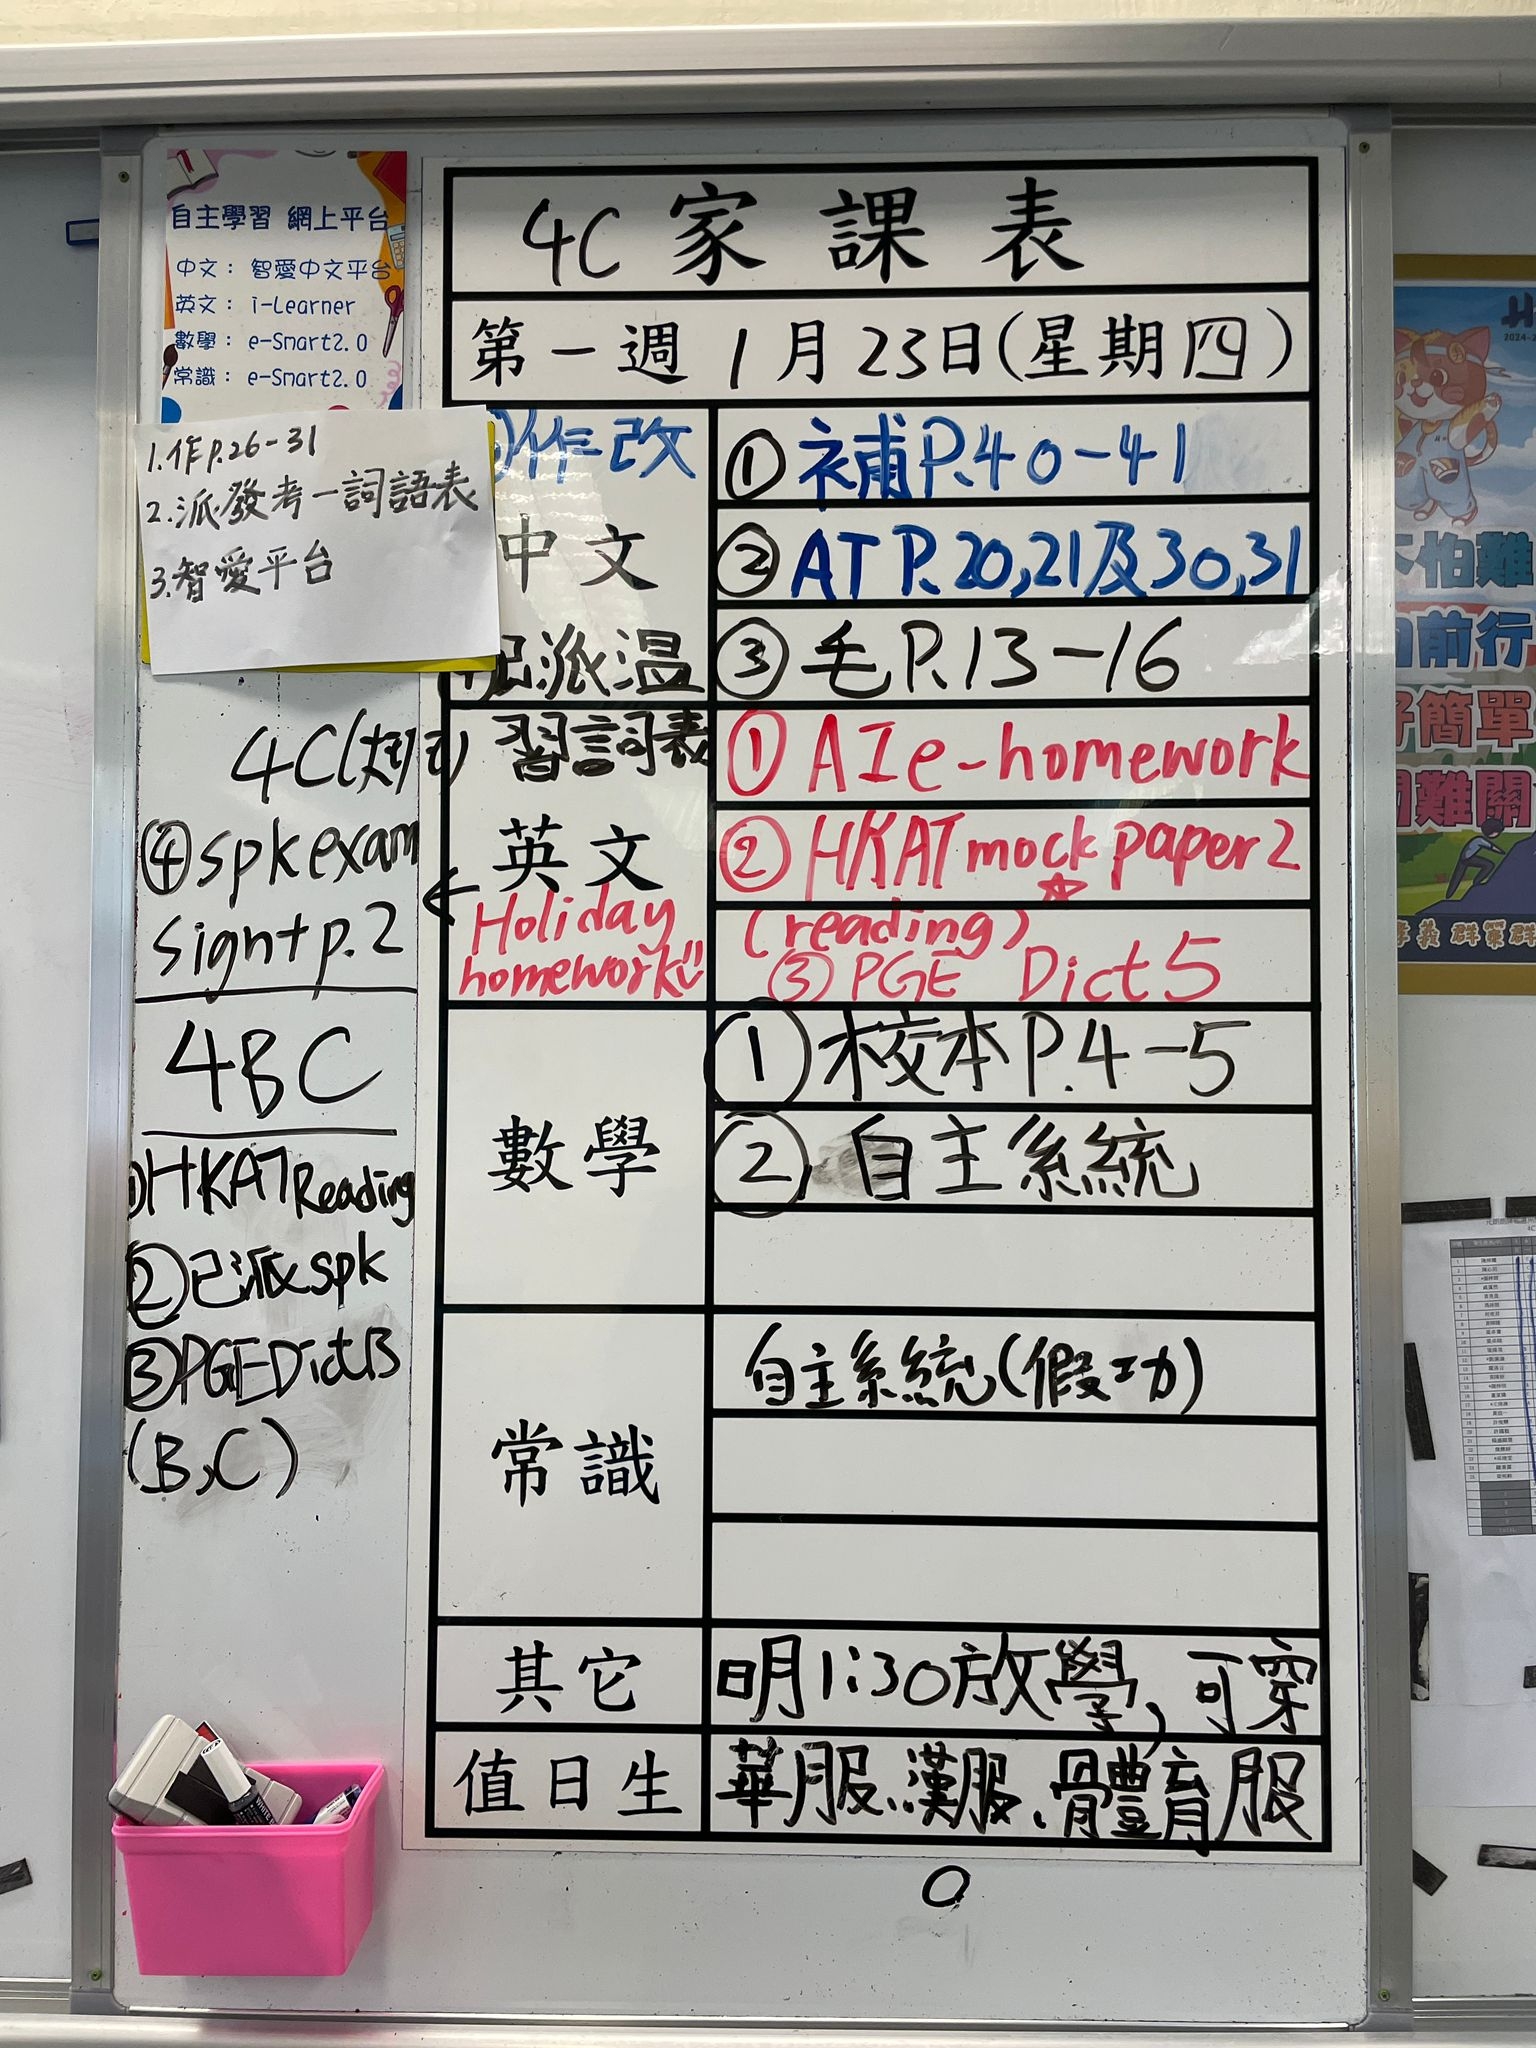 自主學習 網上平台
中文： 智愛中文平台
英文： i-Learner
數學： e-Smart2.0
常識： e-Smart2.0
1.作P.26-31
2.派發考一詞語表
3.智愛平台
4C家課表
第一週 1月23日(星期四)
作改
中文
派温
習詞表
①補P.40-41
②AT P.20,21及30,31
③毛P.13-16
英文
Holiday
homework
①AI e-homework
②HKAT mock paper 2
(reading)
③PGE Dict 5
數學
①校本P.4-5
②自主系統
常識
自主系統(假功)
其它
明1:30放學,可穿
值日生
華服、漢服、體育服
4C
④spk exam
sign+p.2
4BC
①HKAT Reading
②已派spk
③PGE Dict
(B,C)
2024-2
不怕難
前行
簡單
難關
群策群